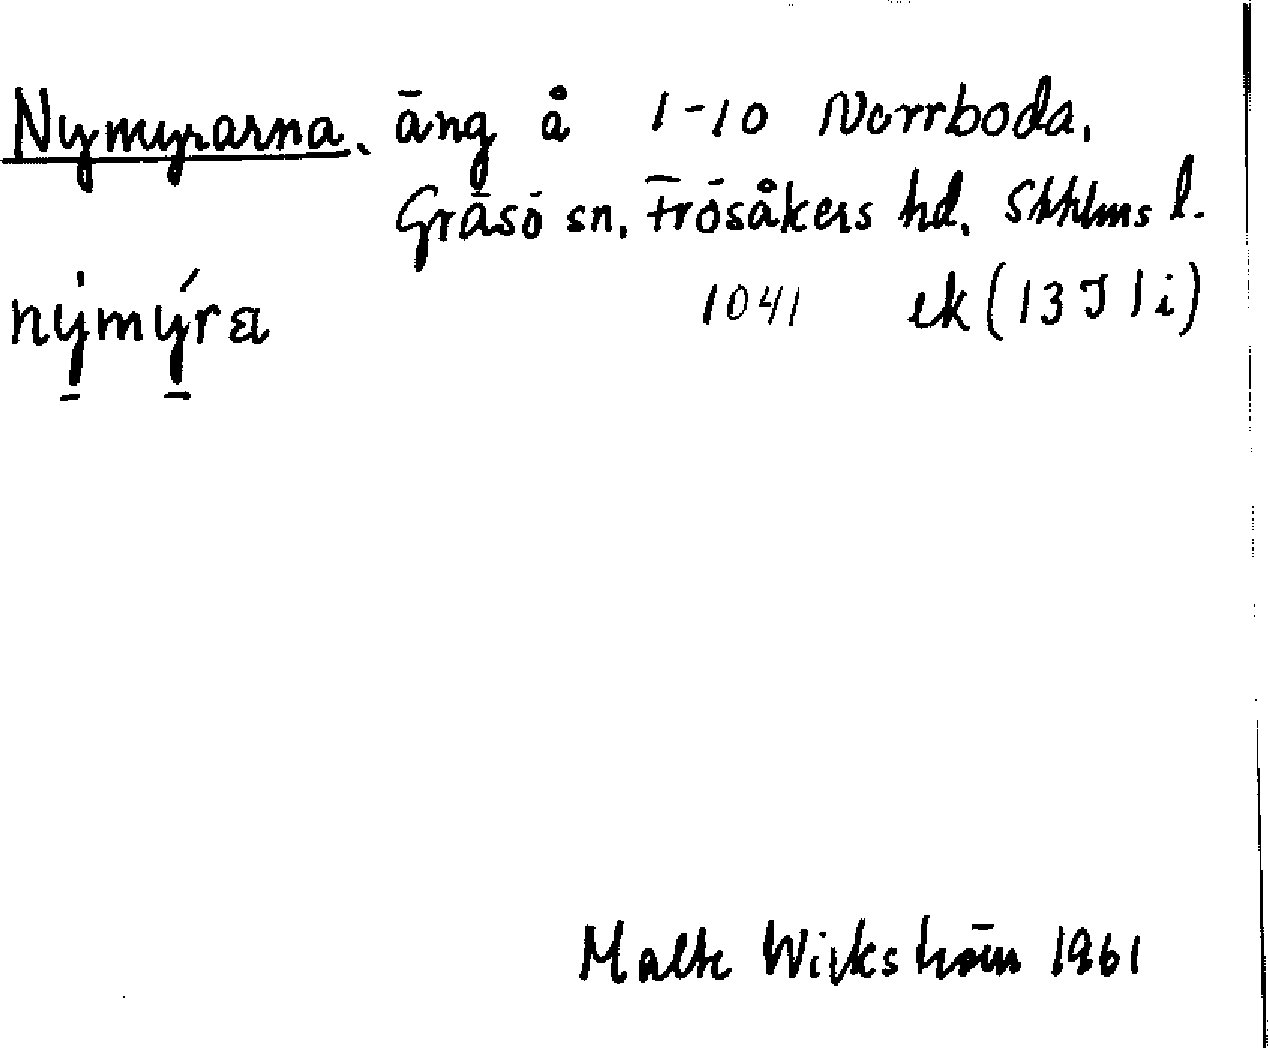 Nymyrarna, äng å 1-10 Norrboda,
Gräsö sn, Frösåkers hd, Sthlms l.
nýmýra 1041 ek (13 I 1 i)
Malte Wickström 1961